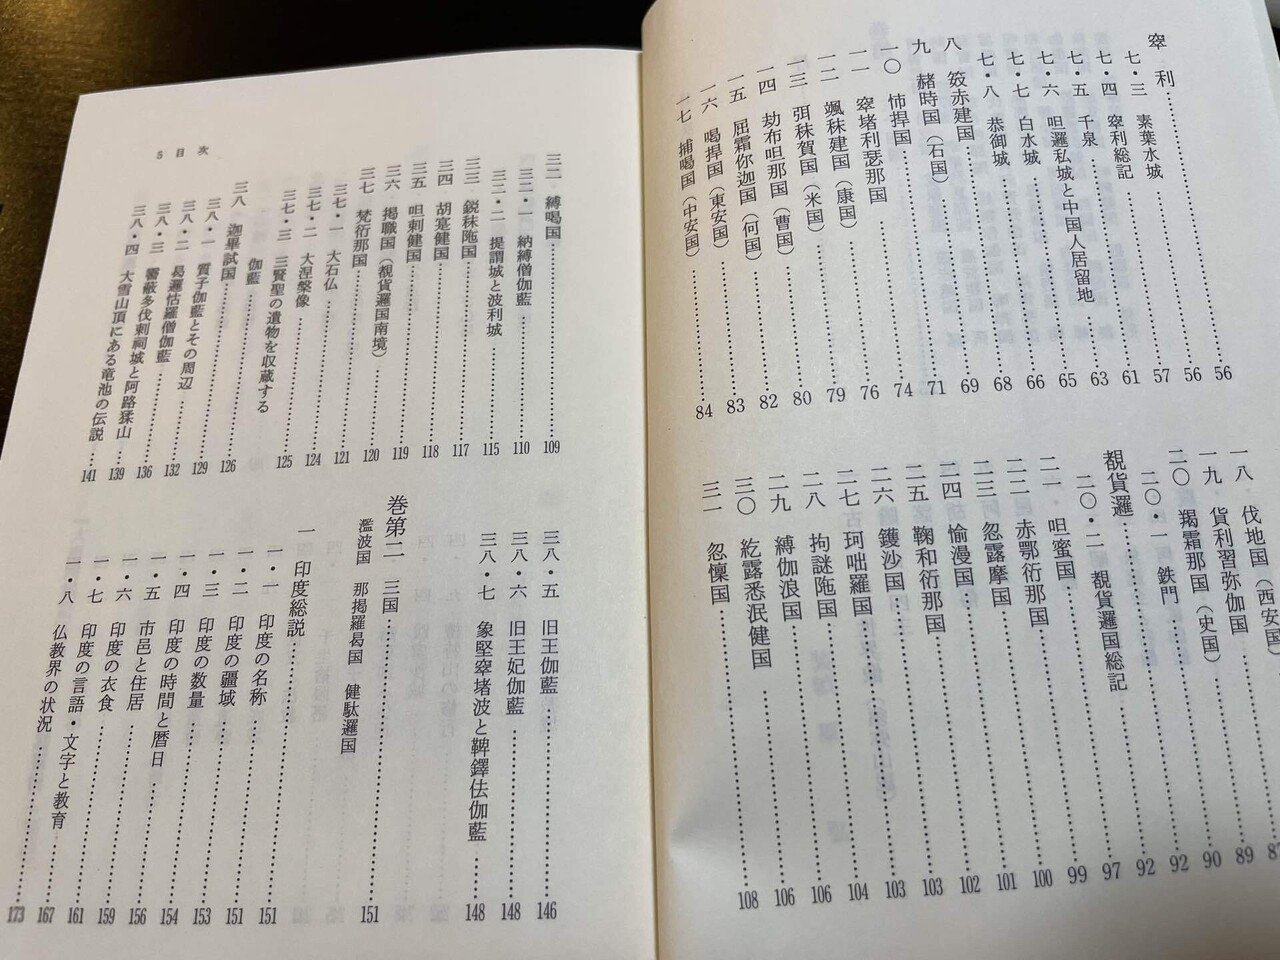 窣利 56
七・三 素葉水城 56
七・四 窣利総記 57
七・五 千泉 61
七・六 呾邏私城と中国人居留地 63
七・七 白水城 65
七・八 恭御城 66
八 笯赤建国 68
九 赭時国（石国） 69
一〇 㤄捍国 71
一一 窣堵利瑟那国 74
一二 颯秣建国（康国） 76
一三 弭秣賀国（米国） 79
一四 劫布呾那国（曹国） 80
一五 屈霜你迦国（何国） 82
一六 喝捍国（東安国） 83
一七 捕喝国（中安国） 84
一八 伐地国（西安国）
一九 貨利習弥伽国 87
二〇 羯霜那国（史国） 89
二〇・一 鉄門 90
覩貨邏 92
二〇・二 覩貨邏国総記 92
二一 呾蜜国 97
二二 赤鄂衍那国 99
二三 忽露摩国 100
二四 愉漫国 101
二五 鞠和衍那国 102
二六 鑊沙国 103
二七 珂咄羅国 103
二八 拘謎陁国 104
二九 縛伽浪国 106
三〇 紇露悉泯健国 106
三一 忽懍国 108
5 目次
三二 縛喝国 109
三二・一 納縛僧伽藍 110
三二・二 提謂城と波利城 115
三三 鋭秣陁国 117
三四 胡寔健国 118
三五 呾剌健国 119
三六 掲職国（覩貨邏国南境） 120
三七 梵衍那国 121
三七・一 大石仏 124
三七・二 大涅槃像 125
三七・三 三賢聖の遺物を収蔵する
伽藍 126
三八 迦畢試国 129
三八・一 質子伽藍とその周辺 132
三八・二 曷邏怙羅僧伽藍 136
三八・三 霫蔽多伐剌祠城と阿路猱山 139
三八・四 大雪山頂にある竜池の伝説 141
三八・五 旧王伽藍 146
三八・六 旧王妃伽藍 148
三八・七 象堅窣堵波と鞞鐸佉伽藍 148
巻第二 三国 151
濫波国 那掲羅曷国 健駄邏国
一 印度総説 151
一・一 印度の名称 151
一・二 印度の疆域 153
一・三 印度の数量 154
一・四 印度の時間と暦日 156
一・五 市邑と住居 159
一・六 印度の衣食 161
一・七 印度の言語・文字と教育 167
一・八 仏教界の状況 173